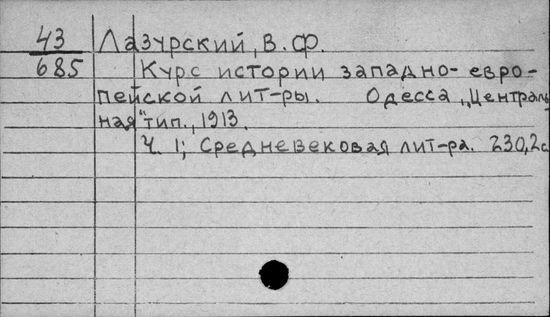 43 Лазурский, В. Ф.
685 Курс истории западно-евро-
пейской лит-ры. Одесса, „Централь
ная" тип., 1913.
Ч. 1; Средневековая лит-ра. 230,2с.